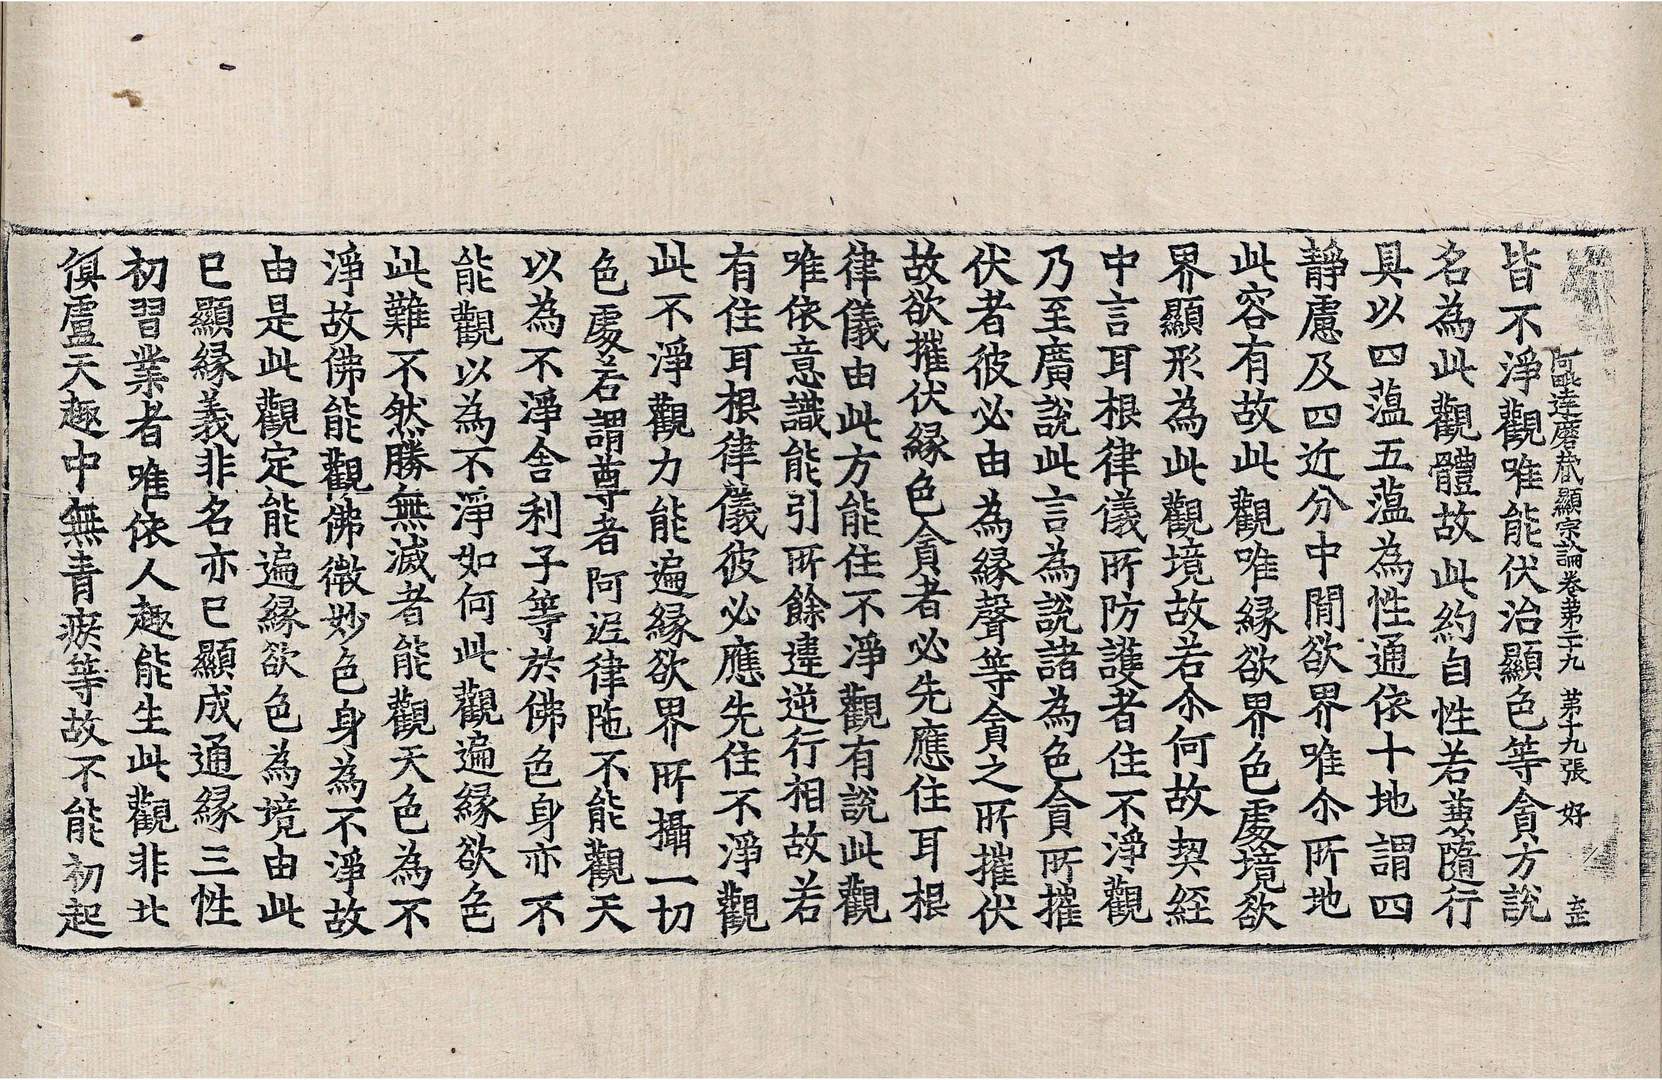 阿毗達磨藏顯宗論卷第二十九 第十九張 好
皆不淨觀唯能伏治顯色等貪方說
名為此觀體故此約自性若兼隨行
具以四蕰五蕰為性通依十地謂四
靜慮及四近分中閒欲界唯尒所地
此容有故此觀唯緣欲界色處境欲
界顯形為此觀境故若尒何故契經
中言耳根律儀所防護者住不淨觀
乃至廣說此言為說諸為色貪所摧
伏者彼必由為緣聲等貪之所摧伏
故欲摧伏緣色貪者必先應住耳根
律儀由此方能住不淨觀有說此觀
唯依意識能引所餘違逆行相故若
有住耳根律儀彼必應先住不淨觀
此不淨觀力能遍緣欲界所攝一切
色處若謂尊者阿泥律陁不能觀天
以為不淨舍利子等於佛色身亦不
能觀以為不淨如何此觀遍緣欲色
此難不然勝無滅者能觀天色為不
淨故佛能觀佛微妙色身為不淨故
由是此觀定能遍緣欲色為境由此
已顯緣義非名亦已顯成通緣三性
初習業者唯依人趣能生此觀非北
俱盧天趣中無青瘀等故不能初起